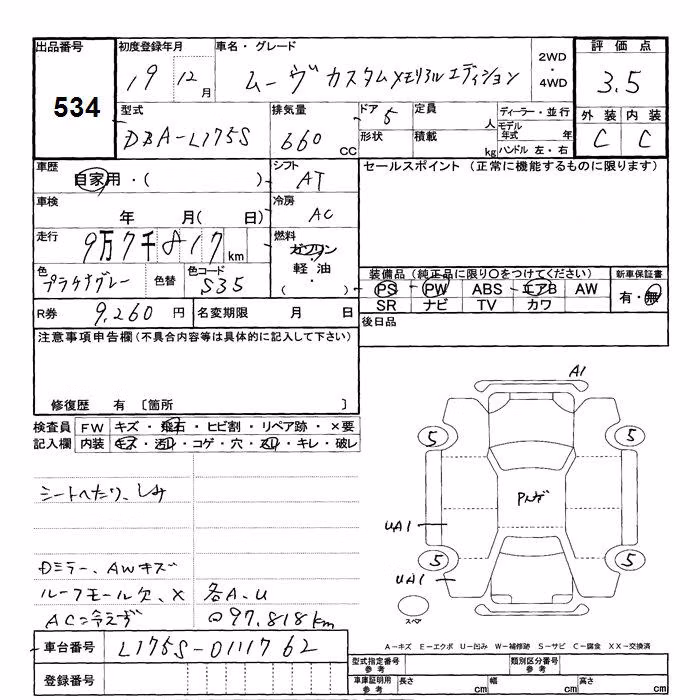 出品番号 初度登録年月 車名・グレード 2WD・4WD 評価点
534 19 12月 ムーヴ カスタムメモリアルエディション 3.5
型式 排気量 ドア 5 定員 人 ディーラー・並行 外装 内装
DBA-L175S 660 CC 形状 積載 kg モデル年式 年 ハンドル 左・右 C C
車歴 自家用・( ) シフト AT セールスポイント (正常に機能するものに限ります)
車検 年 月( 日) 冷房 AC
走行 9万7千817km 燃料 ガソリン
軽油
・
( )
色 プラムナグレー 色替 色コード S35
装備品 (純正品に限り〇をつけてください) 新車保証書
PS PW ABS エアB AW 有・無
SR ナビ TV カワ
R券 9,260円 名変期限 月 日 後日品
注意事項申告欄 (不具合内容等は具体的に記入して下さい)
修復歴 有 〔箇所 〕
検査員 FW キズ・飛石・ヒビ割・リペア跡・×要
記入欄 内装 キズ・汚れ・コゲ・穴・スレ・キレ・破レ
A1
5 5
シートへたり、しみ
UA1
5 5
UA1
スペア
Dミラー、AWキズ
ルーフモール欠、X 各A、U
AC=冷えず 97,818km
A-キズ E-エクボ U-凹み W-補修跡 S-サビ C-腐食 XX-交換済
車台番号 L175S-0111762
型式指定番号 参考 類別区分番号 参考
登録番号
車庫証明用 参考 長さ cm 幅 cm 高さ cm